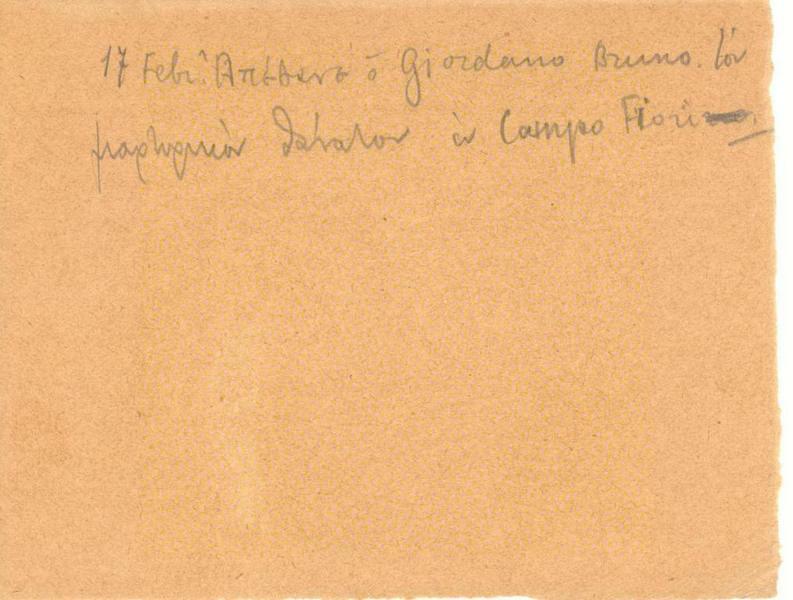 17 Febr. Ἀπέθανε ὁ Giordano Bruno. τὸν
μαρτυρικὸν θάνατον ἐν Campo Fiori